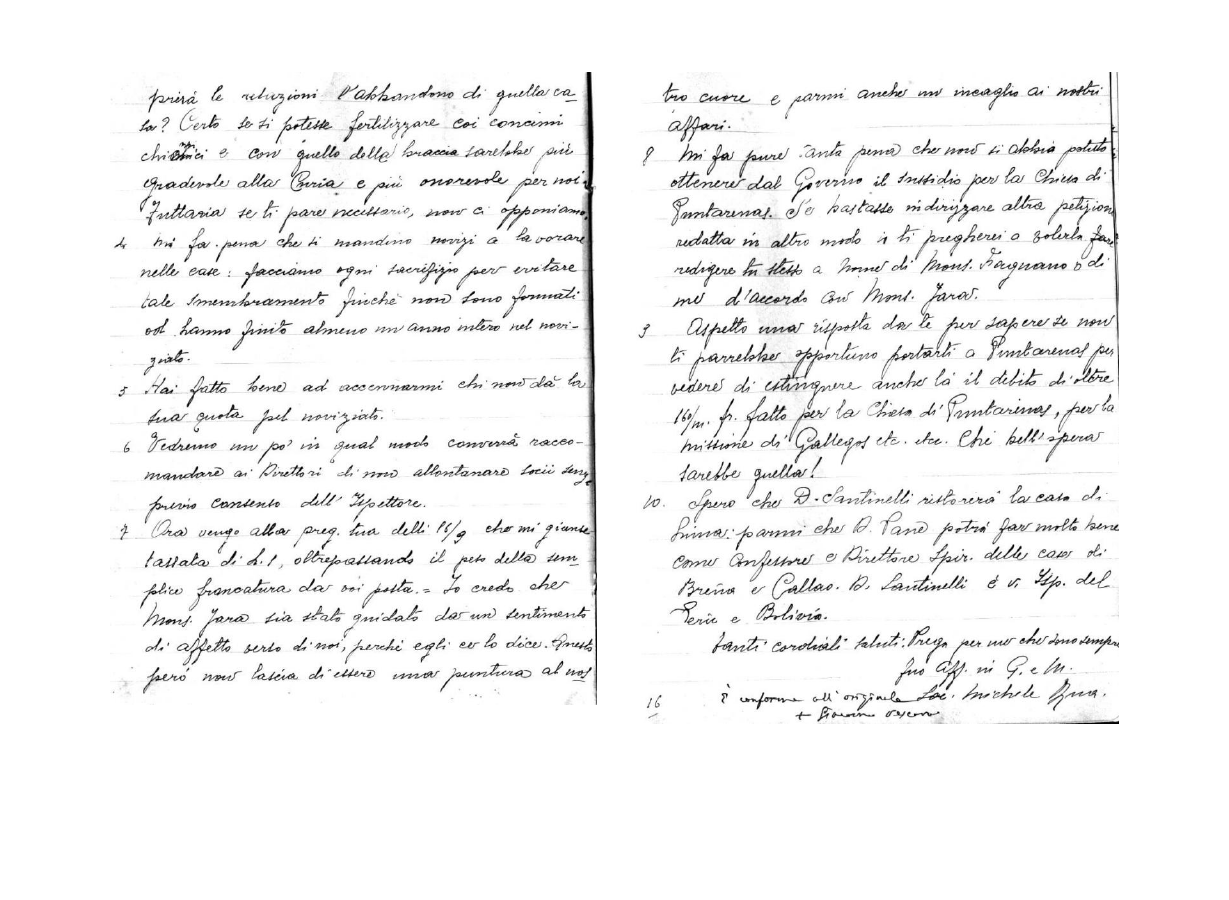 prirà le reluzioni l'abbandono di quella ca=
sa? Certo se si potesse fertilizzare coi concimi
chimici e con quello della braccia sarebbe più
gradevole alla Curia e più onorevole per noi.
Tuttavia se ti pare necessario, non ci opponiamo.
4 Mi fa pena che si mandino novizi a lavorare
nelle case: facciamo ogni sacrifizio per evitare
tale smembramento finchè non sono formati
od hanno finito almeno un anno intero nel novi-
ziato.
5 Hai fatto bene ad accennarmi chi non dà la
sua quota pel noviziato.
6 Vedremo un po' in qual modo converrà racco-
mandare ai Direttori di non allontanare socii senza
previo consenso dell'Ispettore.
7 Ora vengo alla preg. tua delli 18/9 che mi giunse
tassata di L. 1, oltrepassando il peso della sem=
plice francatura da voi posta. = Io credo che
Mons. Jara sia stato guidato da un sentimento
di affetto verso di noi, perchè egli ce lo dice. Questo
però non lascia di essere una puntura al nos
tro cuore e parmi anche un incaglio ai nostri
affari.
8 Mi fa pure tanta pena che non si abbia potuto
ottenere dal Governo il sussidio per la Chiesa di
Puntarenas. Se bastasse indirizzare altra petizione
redatta in altro modo io ti pregherei a volerla fare
redigere tu stesso a nome di Mons. Fagnano o di
me d'accordo con Mons. Jara.
9 Aspetto una risposta da te per sapere se non
ti parrebbe opportuno portarti a Puntarenas per
vedere di estinguere anche là il debito di oltre
160/m. fr. fatto per la Chiesa di Puntarenas, per la
missione di Gallegos etc. etc. Che bell'opera
sarebbe quella!
10. Spero che D. Santinelli ristorerà la casa di
Lima: parmi che D. Pane potrà far molto bene
come Confessore e Direttore Spir. delle case di
Breña e Callao. D. Santinelli è v. Isp. del
Perù e Bolivia.
Tanti cordiali saluti. Prega per me che sono sempre
tuo Aff. in G. e M.
Sac. Michele Rua.
È conforme all'originale
+ Giacomo
16